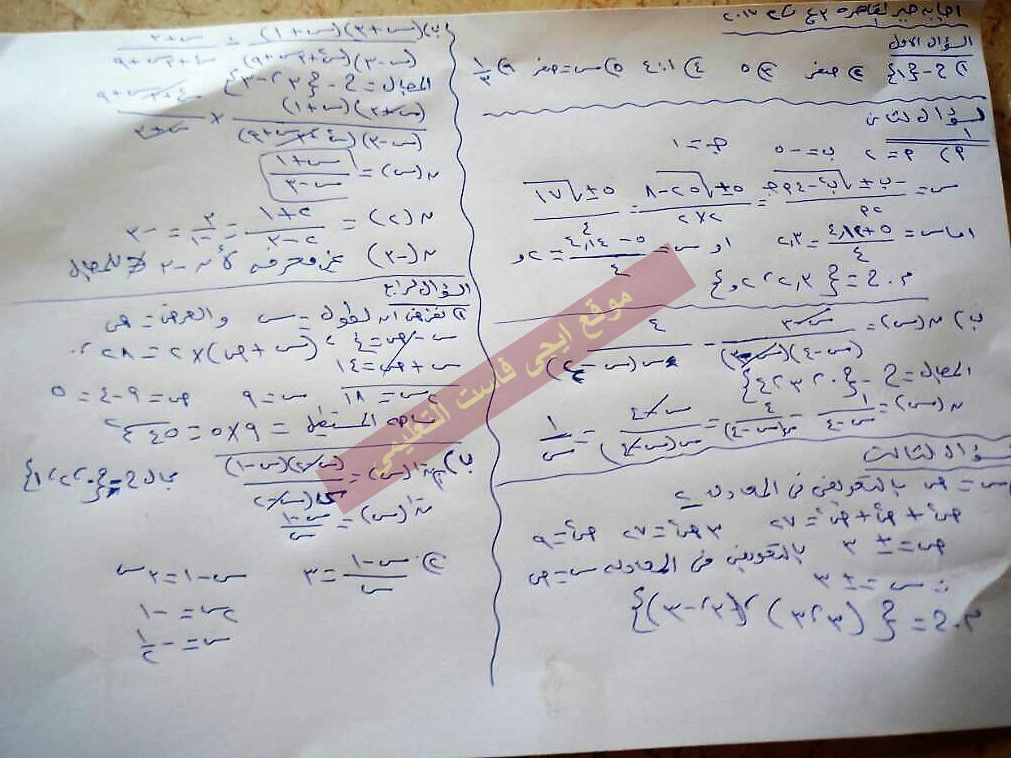 اجابة جبر القاهرة ٣ع ت٢ ٢٠١٧
السؤال الاول
١) ح-{١} ٢) صفر ٣) ٥ ٤) ٠.١ ٥) س=صفر ٦) ١/٣
السؤال الثانى
٩) ٩=٢ ب=-٥ جـ=١
س= (-ب±√(ب٢-٤٩جـ))/٢٩ = (٥±√(٢٥-٨))/(٢×٢) = (٥±√١٧)/٤
اما س= (٥+٤,١)/٤ = ٢,٣ او س= (٥-٤,١)/٤ = ٢,و
م.ح={٢,٣ ، ٢,و}
ب) ن(س)= (س-٣)/((س-٤)(س-٣)) - ٤/(س(س-٤))
المجال=ح-{٠، ٣، ٤}
ن(س)= ١/(س-٤) - ٤/(س(س-٤)) = (س-٤)/(س(س-٤)) = ١/س
السؤال الثالث
س=ص بالتعويض فى المعادلة ٢
ص٢+ص٢+ص٢=٢٧ ٣ص٢=٢٧ ص٢=٩
ص=±٣ بالتعويض فى المعادلة س=ص
∴ س=±٣
م.ح={(٣، ٣)، (-٣، -٣)}
المجال=ح-{٣، -٣}
ن(س)= (س+١)/(س-٣)
ن(٢)= (٢+١)/(٢-٣) = ٣/-١ = -٣
ن(-٣) غير معرفة لأن -٣ ∌ المجال
السؤال الرابع
١) نفرض ان الطول=س والعرض=ص
س-ص=٤ ، (س+ص)×٢=٢٨
س+ص=١٤
٢س=١٨ س=٩ ص=٩-٤=٥
مساحة المستطيل=٩×٥=٤٥سم٢
ب) ن-١(س)= (س-٢)(س-١)/(س(س-٢)) مجال=ح-{٠، ٢، ١}
ن-١(س)= (س-١)/س
٢) (س-١)/س=٣ س-١=٣س
٢س=-١
س=-١/٢
موقع ايجى فاست التعليمي